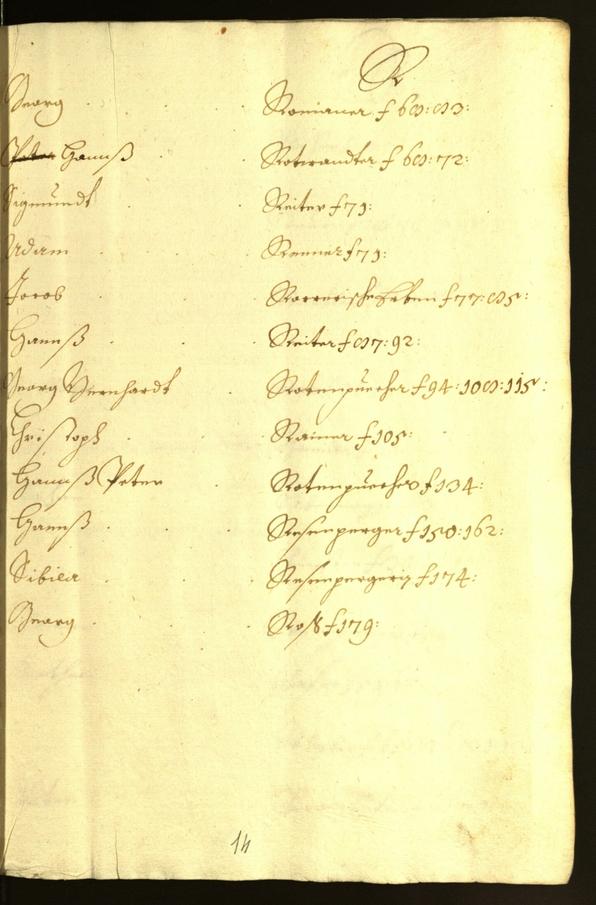 R
Georg Romianer f 68: 83:
Peter Hannß Rotwandter f 68: 72:
Sigmundt Reiter f 71:
Adam Renner f 71:
Jacob f 77: 85:
Hannß Reiter f 87: 92:
Georg Bernhardt Rotenpuecher f 94: 108: 115:
Christoph Rainer f 105:
Hannß Peter Rotenpuecher f 134:
Hannß Resenperger f 150: 162:
Sibilla Resenpergerin f 174:
Georg Roß f 179:
14